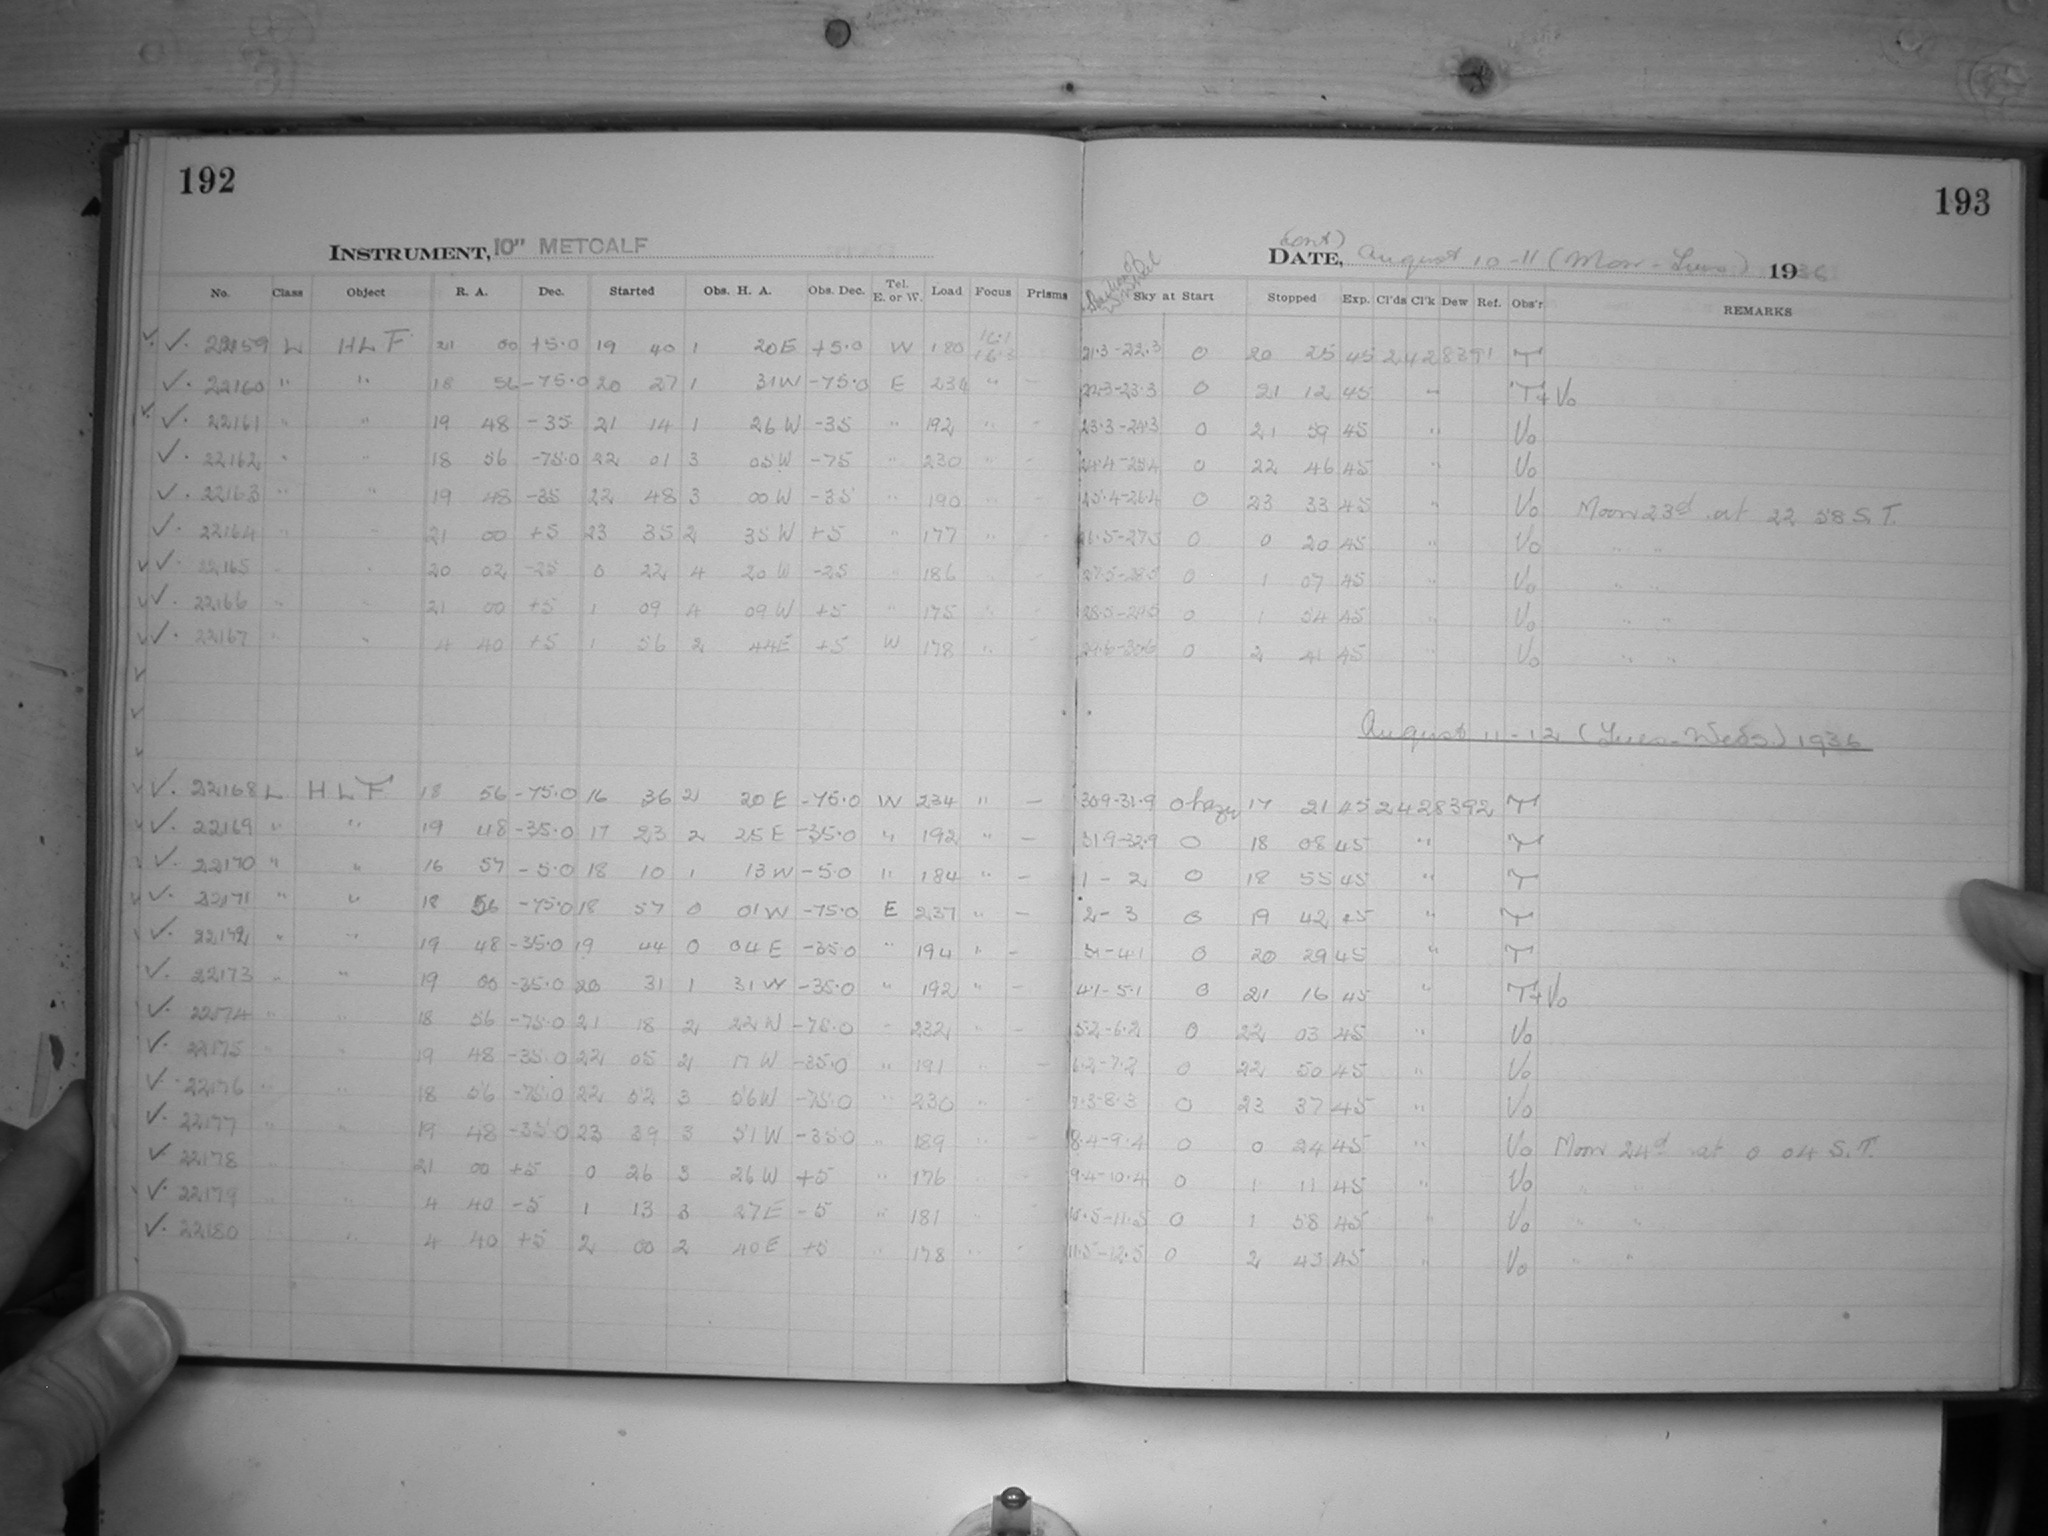 192
193
INSTRUMENT, 10" METCALF
(cont)
DATE, August 10-11 (Mon - Tues) 1936
No. Class Object R. A. Dec. Started Obs. H. A. Obs. Dec. Tel. E. or W. Load Focus Prisms Sky at Start Stopped Exp. Cl'ds Cl'k Dew Ref. Obs'r REMARKS
✓. 22159 L HLF 21 00 +5.0 19 40 1 20E +5.0 W 180 21.3-22.3 0 20 25 45 2428391 T
✓. 22160 " " 18 56 -75.0 20 27 1 31W -75.0 E 234 " - 22.3-23.3 0 21 12 45 " T+Vo
✓. 22161 " " 19 48 -35 21 14 1 26W -35 " 192 " - 23.3-24.3 0 21 59 45 " Vo
✓. 22162 " " 18 56 -75.0 22 01 3 05W -75 " 230 " - 24.4-25.4 0 22 46 45 " Vo
✓. 22163 " " 19 48 -35 22 48 3 00W -35 " 190 " - 25.4-26.4 0 23 33 45 " Vo Moon 23d at 22 58 S.T.
✓. 22164 " " 21 00 +5 23 35 2 35W +5 " 177 " - 26.5-27.5 0 0 20 45 " Vo " "
✓. 22165 " " 20 02 -25 0 22 4 20W -25 " 186 " - 27.5-28.5 0 1 07 45 " Vo " "
✓. 22166 " " 21 00 +5 1 09 4 09W +5 " 175 " - 28.5-29.5 0 1 54 45 " Vo " "
✓. 22167 " " 4 40 +5 1 56 2 44E +5 W 178 " - 29.6-30.6 0 2 41 45 " Vo " "
August 11-12 (Tues-Weds) 1936
✓. 22168 L HLF 18 56 -75.0 16 36 2 20E -75.0 W 234 " - 30.9-31.9 0 hazy 17 21 45 2428392 T
✓. 22169 " " 19 48 -35.0 17 23 2 25E -35.0 " 192 " - 31.9-32.9 0 18 08 45 " T
✓. 22170 " " 16 57 -5.0 18 10 1 13W -5.0 " 184 " - 1-2 0 18 55 45 " T
✓. 22171 " " 18 56 -75.0 18 57 0 01W -75.0 E 237 " - 2-3 0 19 42 45 " T
✓. 22172 " " 19 48 -35.0 19 44 0 04E -35.0 " 194 " - 31-4.1 0 20 29 45 " T
✓. 22173 " " 19 00 -35.0 20 31 1 31W -35.0 " 192 " - 4.1-5.1 0 21 16 45 " T+Vo
✓. 22174 " " 18 56 -75.0 21 18 2 22W -75.0 " 232 " - 5.2-6.2 0 22 03 45 " Vo
✓. 22175 " " 19 48 -35.0 22 05 2 17W -35.0 " 191 " - 6.2-7.2 0 22 50 45 " Vo
✓. 22176 " " 18 56 -75.0 22 52 3 56W -75.0 " 230 " - 7.3-8.3 0 23 37 45 " Vo
✓. 22177 " " 19 48 -35.0 23 39 3 51W -35.0 " 189 " - 8.4-9.4 0 0 24 45 " Vo Moon 24d at 0 04 S.T.
✓. 22178 " " 21 00 +5 0 26 3 26W +5 " 176 " - 9.4-10.4 0 1 11 45 " Vo " "
✓. 22179 " " 4 40 -5 1 13 3 27E -5 " 181 " - 10.5-11.5 0 1 58 45 " Vo " "
✓. 22180 " " 4 40 +5 2 00 2 40E +5 " 178 " - 11.5-12.5 0 2 45 45 " Vo " "